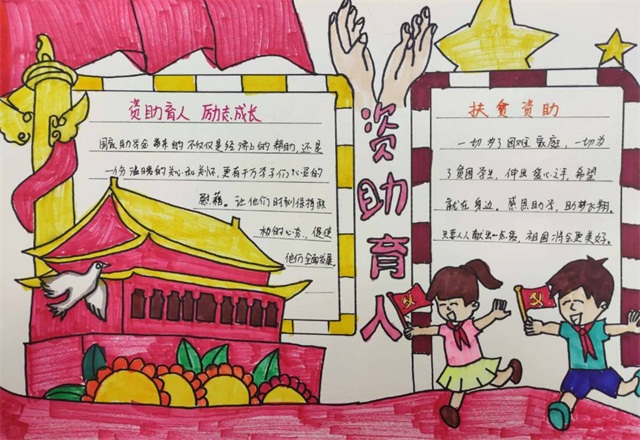 资助育人 励志成长
国家助学金带来的不仅仅是经济上的帮助,还是
一份温暖的关心和关怀,更有千万学子们心灵的
慰藉。让他们时刻保持积
极的心态,促使
他们全面发展
资助育人
扶贫资助
一切为了困难家庭,一切为
了贫困学生,伸出爱心之手,希望
就在身边。感恩助学,助梦飞翔。
只要人人献出一点爱,祖国将会更美好。